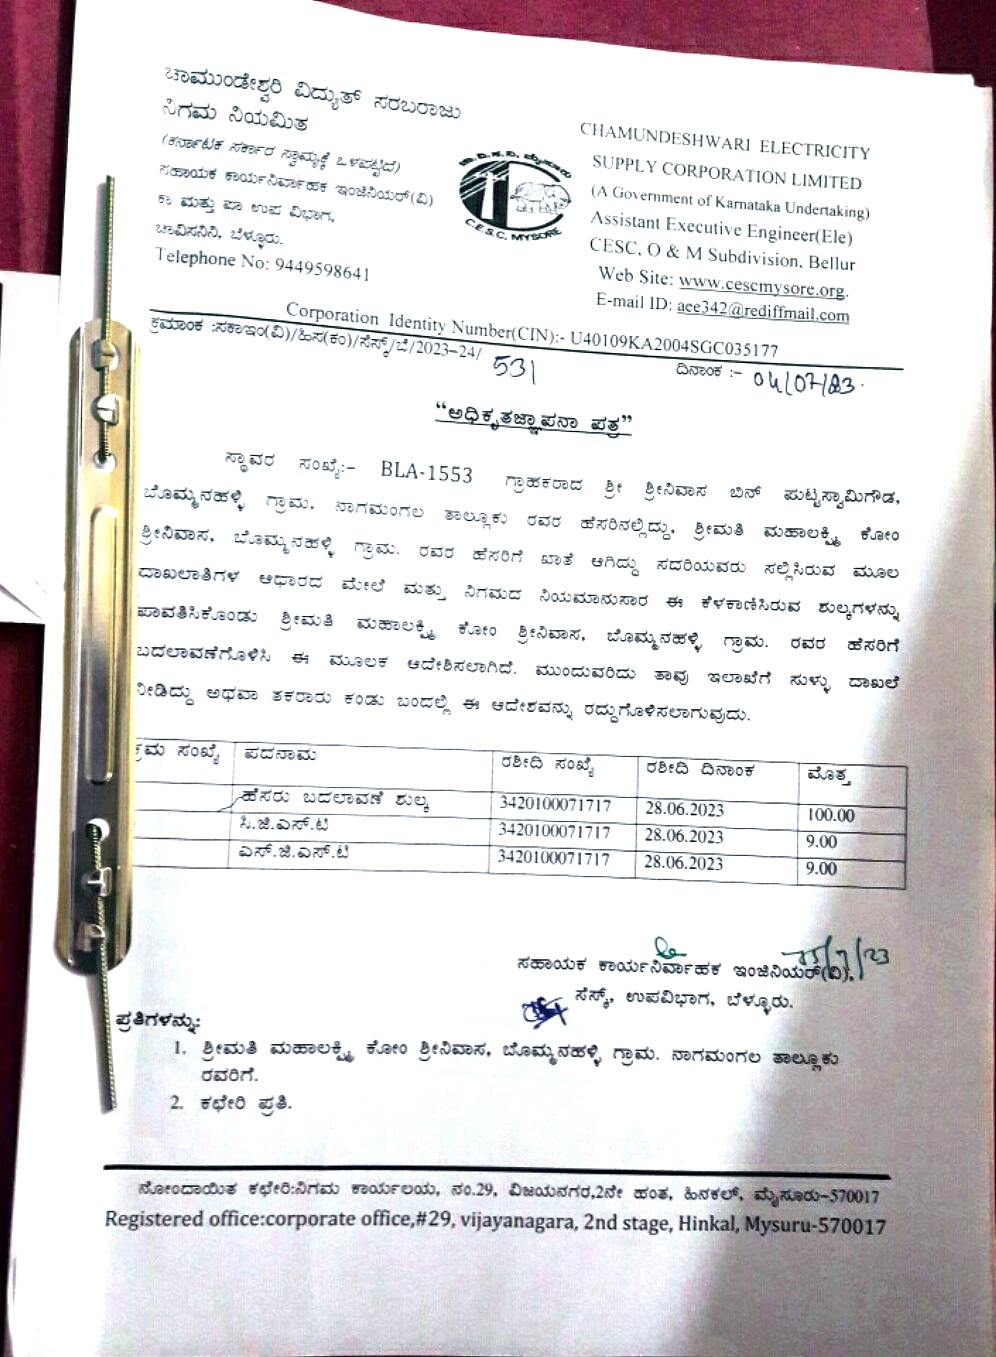 ಚಾಮುಂಡೇಶ್ವರಿ ವಿದ್ಯುತ್ ಸರಬರಾಜು
ನಿಗಮ ನಿಯಮಿತ
(ಕರ್ನಾಟಕ ಸರ್ಕಾರ ಸ್ವಾಮ್ಯಕ್ಕೆ ಒಳಪಟ್ಟಿದೆ)
ಸಹಾಯಕ ಕಾರ್ಯನಿರ್ವಾಹಕ ಇಂಜಿನಿಯರ್(ವಿ)
ಕಾ ಮತ್ತು ಪಾ ಉಪ ವಿಭಾಗ,
ಚಾವಿಸನಿನಿ, ಬೆಳ್ಳೂರು.
Telephone No: 9449598641
ಚಾ.ವಿ.ಸ.ನಿ. ಮೈಸೂರು
C.E.S.C. MYSORE
CHAMUNDESHWARI ELECTRICITY
SUPPLY CORPORATION LIMITED
(A Government of Karnataka Undertaking)
Assistant Executive Engineer(Ele)
CESC, O & M Subdivision, Bellur
Web Site: www.cescmysore.org.
E-mail ID: aee342@rediffmail.com
Corporation Identity Number(CIN):- U40109KA2004SGC035177
ಕ್ರಮಾಂಕ :ಸಕಾಇಂ(ವಿ)/ಹಿಸ(ಕಂ)/ಸೆಸ್ಕ್/ಬೆ/2023-24/ 531 ದಿನಾಂಕ :- 04/07/23.
“ಅಧಿಕೃತಜ್ಞಾಪನಾ ಪತ್ರ”
ಸ್ಥಾವರ ಸಂಖ್ಯೆ:- BLA-1553 ಗ್ರಾಹಕರಾದ ಶ್ರೀ ಶ್ರೀನಿವಾಸ ಬಿನ್ ಪುಟ್ಟಸ್ವಾಮಿಗೌಡ,
ಬೊಮ್ಮನಹಳ್ಳಿ ಗ್ರಾಮ, ನಾಗಮಂಗಲ ತಾಲ್ಲೂಕು ರವರ ಹೆಸರಿನಲ್ಲಿದ್ದು, ಶ್ರೀಮತಿ ಮಹಾಲಕ್ಷ್ಮಿ ಕೋಂ
ಶ್ರೀನಿವಾಸ, ಬೊಮ್ಮನಹಳ್ಳಿ ಗ್ರಾಮ. ರವರ ಹೆಸರಿಗೆ ಖಾತೆ ಆಗಿದ್ದು ಸದರಿಯವರು ಸಲ್ಲಿಸಿರುವ ಮೂಲ
ದಾಖಲಾತಿಗಳ ಆಧಾರದ ಮೇಲೆ ಮತ್ತು ನಿಗಮದ ನಿಯಮಾನುಸಾರ ಈ ಕೆಳಕಾಣಿಸಿರುವ ಶುಲ್ಕಗಳನ್ನು
ಪಾವತಿಸಿಕೊಂಡು ಶ್ರೀಮತಿ ಮಹಾಲಕ್ಷ್ಮಿ ಕೋಂ ಶ್ರೀನಿವಾಸ, ಬೊಮ್ಮನಹಳ್ಳಿ ಗ್ರಾಮ. ರವರ ಹೆಸರಿಗೆ
ಬದಲಾವಣೆಗೊಳಿಸಿ ಈ ಮೂಲಕ ಆದೇಶಿಸಲಾಗಿದೆ. ಮುಂದುವರಿದು ತಾವು ಇಲಾಖೆಗೆ ಸುಳ್ಳು ದಾಖಲೆ
ನೀಡಿದ್ದು ಅಥವಾ ತಕರಾರು ಕಂಡು ಬಂದಲ್ಲಿ ಈ ಆದೇಶವನ್ನು ರದ್ದುಗೊಳಿಸಲಾಗುವುದು.
ಕ್ರಮ ಸಂಖ್ಯೆ ಪದನಾಮ ರಶೀದಿ ಸಂಖ್ಯೆ ರಶೀದಿ ದಿನಾಂಕ ಮೊತ್ತ
ಹೆಸರು ಬದಲಾವಣೆ ಶುಲ್ಕ 3420100071717 28.06.2023 100.00
ಸಿ.ಜಿ.ಎಸ್.ಟಿ 3420100071717 28.06.2023 9.00
ಎಸ್.ಜಿ.ಎಸ್.ಟಿ 3420100071717 28.06.2023 9.00
ಸಹಾಯಕ ಕಾರ್ಯನಿರ್ವಾಹಕ ಇಂಜಿನಿಯರ್(ವಿ),
ಸೆಸ್ಕ್, ಉಪವಿಭಾಗ, ಬೆಳ್ಳೂರು.
ಪ್ರತಿಗಳನ್ನು:
1. ಶ್ರೀಮತಿ ಮಹಾಲಕ್ಷ್ಮಿ ಕೋಂ ಶ್ರೀನಿವಾಸ, ಬೊಮ್ಮನಹಳ್ಳಿ ಗ್ರಾಮ. ನಾಗಮಂಗಲ ತಾಲ್ಲೂಕು
ರವರಿಗೆ.
2. ಕಛೇರಿ ಪ್ರತಿ.
ನೋಂದಾಯಿತ ಕಛೇರಿ:ನಿಗಮ ಕಾರ್ಯಲಯ, ನಂ.29, ವಿಜಯನಗರ,2ನೇ ಹಂತ, ಹಿನಕಲ್, ಮೈಸೂರು-570017
Registered office:corporate office,#29, vijayanagara, 2nd stage, Hinkal, Mysuru-570017